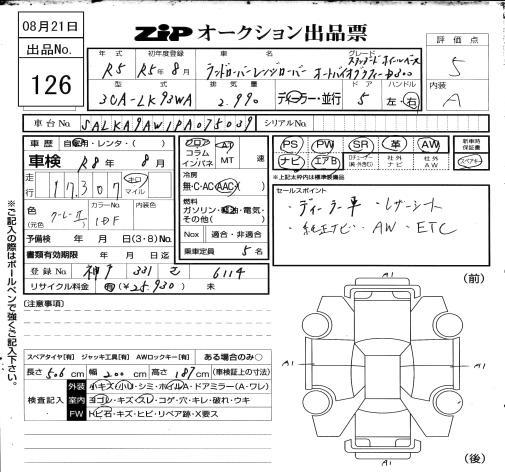 08月21日
出品No.
126
ZIP オークション出品票
年式 初年度登録 車名 グレード
R5 R5年8月 ランドローバーレンジローバー
オートバイオグラフィー D300
型式 排気量 ドア ハンドル
3CA-LK93WA 2.990 ディーラー・並行 5 左・右
評価点
5
内装
A
車台No. SALKA9AW1PA075039 シリアルNo.
車歴 自家用・レンタ・( )
車検 R8年 8月
走行 17,307 キロ マイル
色 (元色) カラーNo. 内装色
グレーII 1DF
予備検 年 月 日(3・8)No.
書類有効期限 年 月 日迄
登録No. 神戸 331 6114
リサイクル料金 有(¥25,930) 未
フロア コラム インパネ AT MT 速
冷房
無・C・AC・AAC・( )
燃料
ガソリン・軽油・電気・
その他( )
Nox 適合・非適合
乗車定員 5名
PS PW SR 革 AW 新車時保証書
ナビ エアB Dチューナー(純・外含む) 社外ナビ 社外AW スペアキー
※上記太枠内は標準装備品
セールスポイント
・ディーラー車 ・レザーシート
・純正ナビ ・AW ・ETC
(注意事項)
スペアタイヤ[有] ジャッキ工具[有] AWロックキー[有] ある場合のみ○
長さ 506 cm 幅 200 cm 高さ 187 cm (車検証上の寸法)
検査記入
外装 小キズ・小凹・シミ・ホイルA・ドアミラー(A・ワレ)
室内 ヨゴレ・キズ・スレ・コゲ・穴・キレ・破れ・ウキ
FW トビ石・キズ・ヒビ・リペア跡・X要ス
※ご記入の際はボールペンで強くご記入下さい。
(前)
A1
A1
A1
A1
(後)